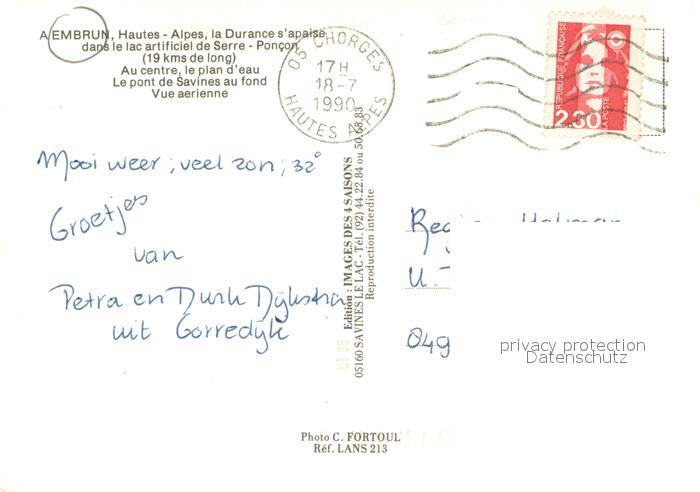 A EMBRUN, Hautes - Alpes, la Durance s'apaise
dans le lac artificiel de Serre - Ponçon
(19 kms de long)
Au centre, le plan d'eau
Le pont de Savines au fond
Vue aerienne
05 CHORGES
17H
18-7
1990
HAUTES ALPES
REPUBLIQUE FRANÇAISE
2.30
LA POSTE
Mooi weer, veel zon, 32°
Groetjes
van
Petra en Durk Dijkstra
uit Gorredijk
Edition : IMAGES DES 4 SAISONS
05160 SAVINES LE LAC - Tél. (92) 44.22.84 ou 50.68.83
Reproduction interdite
049
privacy protection
Datenschutz
Photo C. FORTOUL
Réf. LANS 213